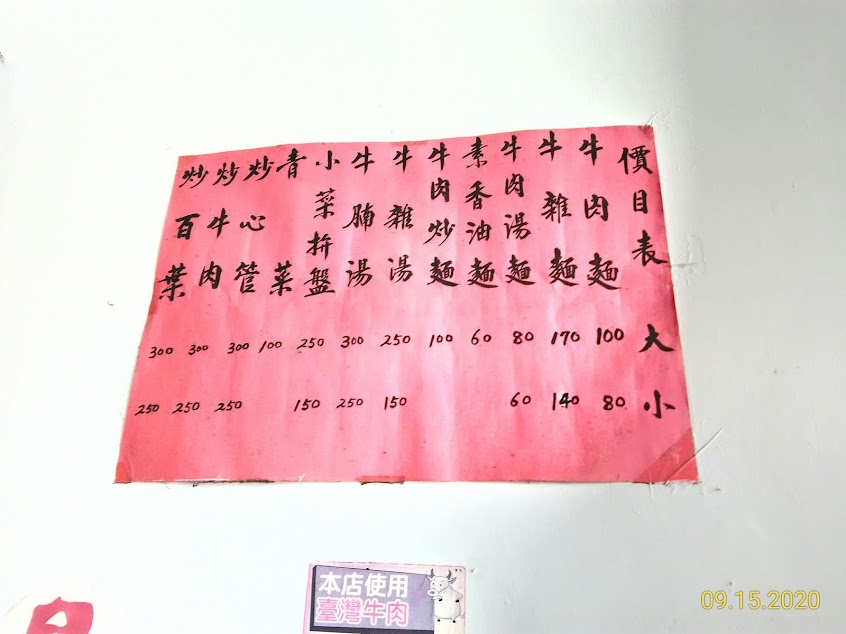 價目表 大 小
牛肉麵 100 80
牛雜麵 170 140
牛肉湯麵 80 60
素香油麵 60
牛肉炒麵 100
牛雜湯 250 150
牛腩湯 300 250
小菜拚盤 250 150
青菜 100
炒心管 300 250
炒牛肉 300 250
炒百葉 300 250
本店使用
臺灣牛肉
09.15.2020